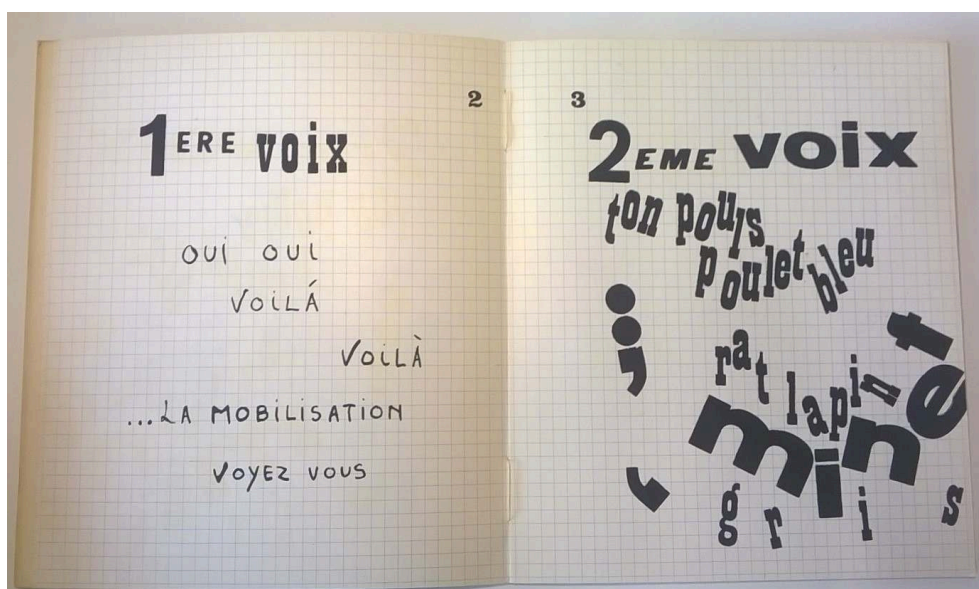 2
1ERE voix
OUi OUi
VOiLÁ
VOiLÀ
...LA MOBILISATION
VOYEZ VOUS
3
2EME voix
ton pouls
poulet bleu
;
rat lapin
minet
,
gris